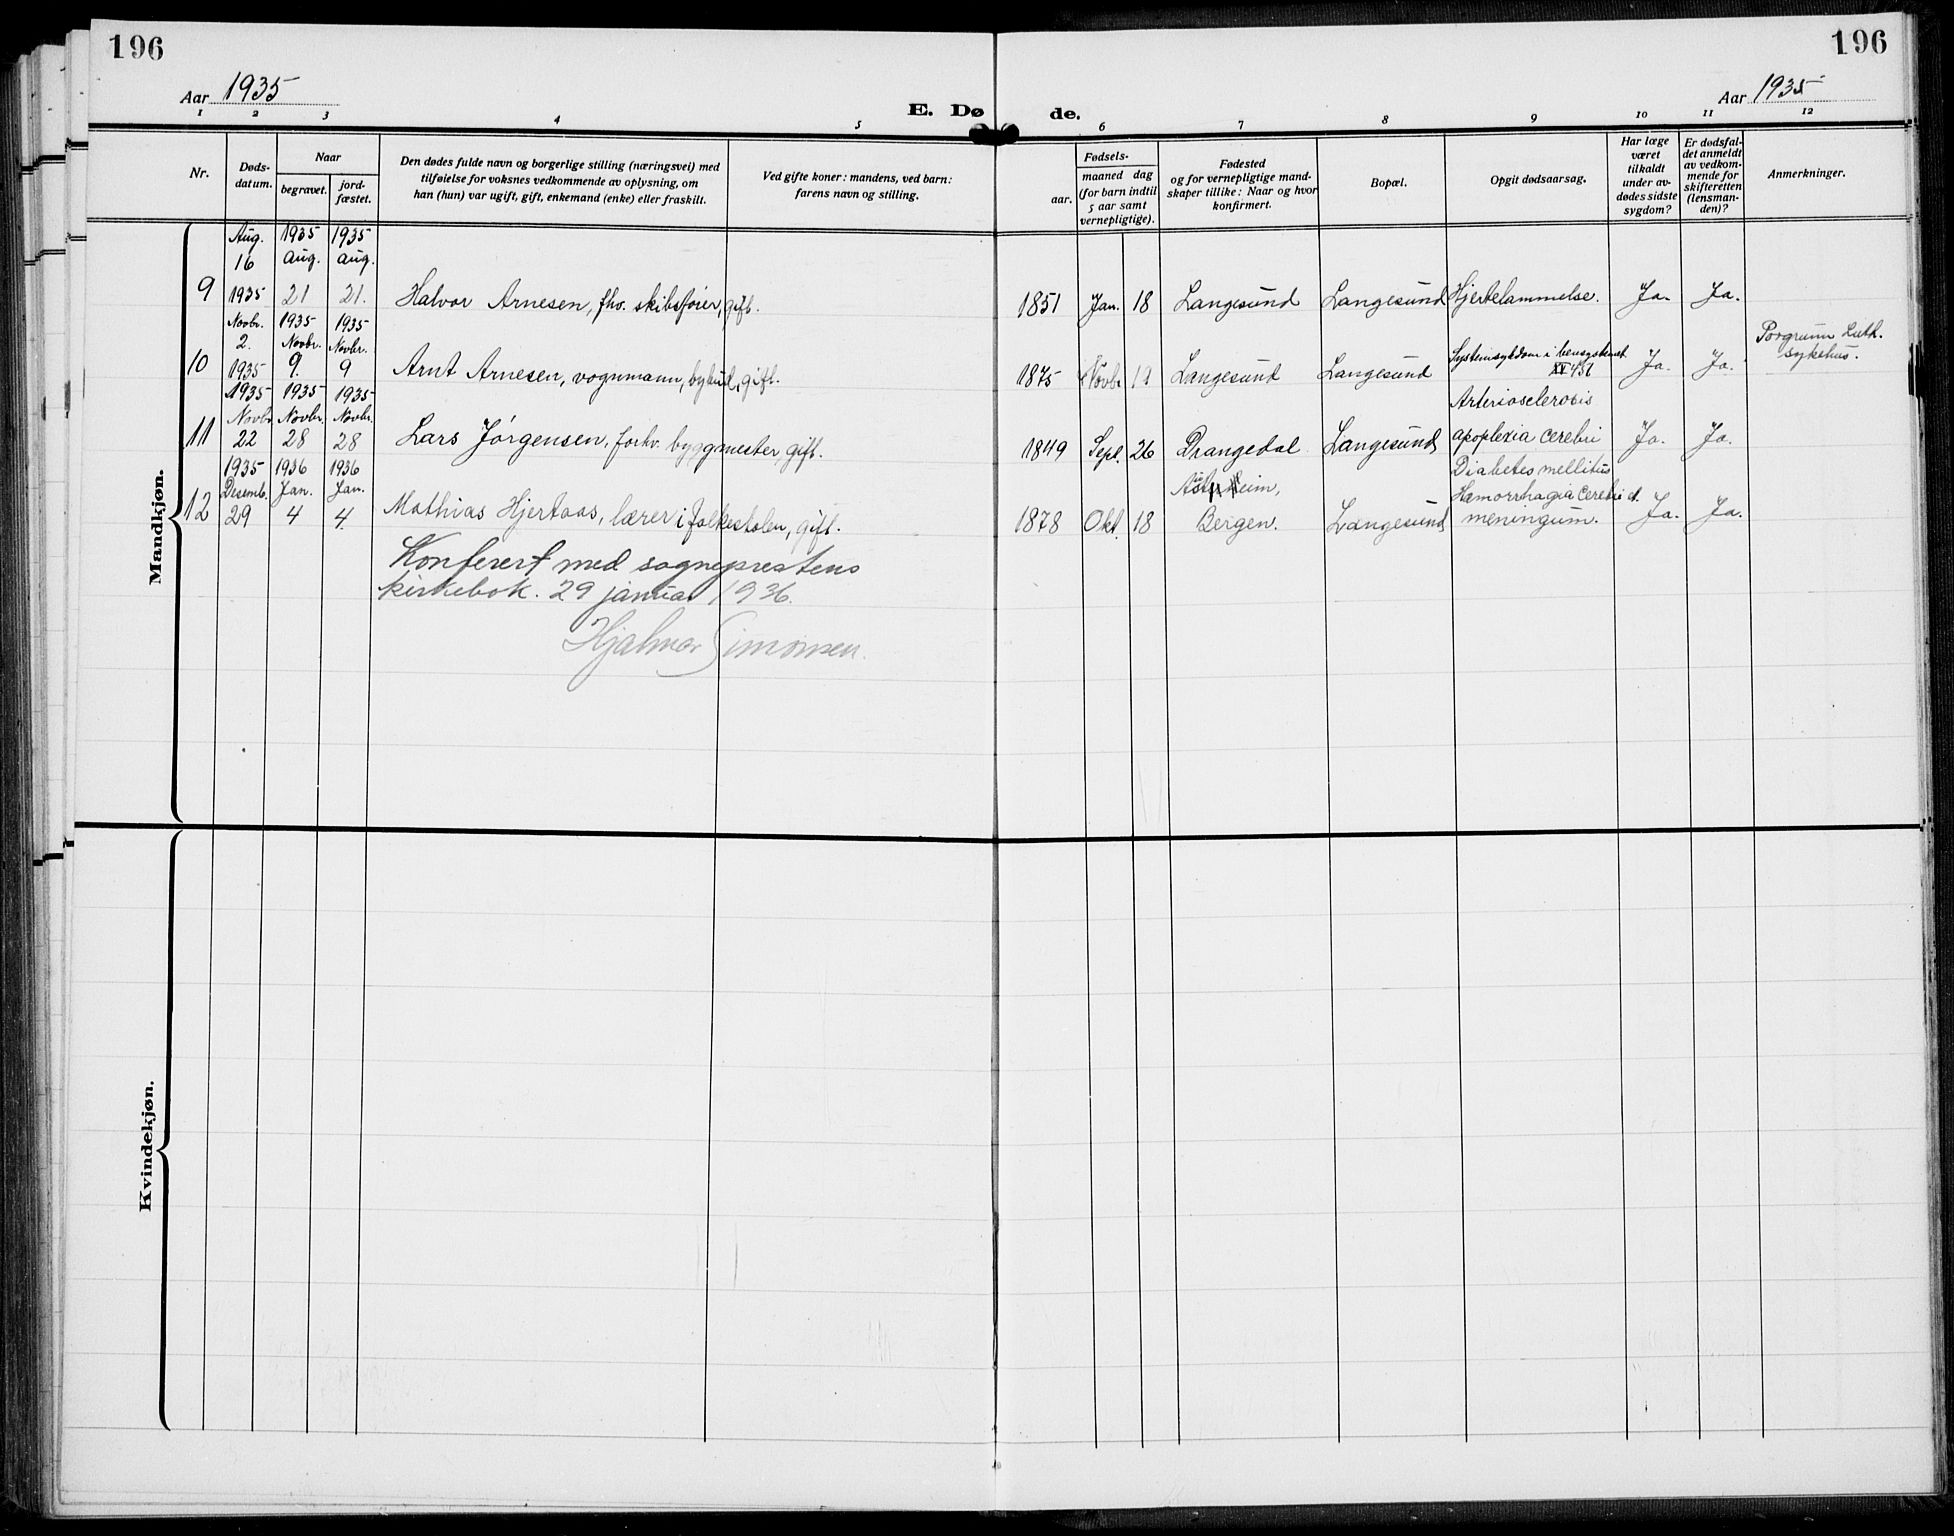 196
196
Aar 1935
Aar 1935
E. Dø de.
1 2 3 4 5 6 7 8 9 10 11 12
Nr.
Døds-
datum.
Naar
begravet.
jord-
fæstet.
Den dødes fulde navn og borgerlige stilling (næringsvei) med
tilføielse for voksnes vedkommende av oplysning, om
han (hun) var ugift, gift, enkemand (enke) eller fraskilt.
Ved gifte koner: mandens, ved barn:
farens navn og stilling.
aar.
Fødsels-
maaned dag
(for barn indtil
5 aar samt
vernepligtige).
Fødested
og for vernepligtige mand-
skaper tillike: Naar og hvor
konfirmert.
Bopæl.
Opgit dødsaarsag.
Har læge
været
tilkaldt
under av-
dødes sidste
sygdom?
Er dødsfal-
det anmeldt
av vedkom-
mende for
skifteretten
(lensman-
den)?
Anmerkninger.
Mandkjøn.
Aug. 1935 1935
16 Aug. Aug.
9 1935 21 21. Halvor Arnesen, fhv. skibsfører, gift. 1851 Jan. 18 Langesund Langesund Hjertelammelse. Ja. Ja.
Novbr. 1935 1935
2. Novbr. Novbr. Systemsykdom i bensystemet Porgrunn Luth.
10 1935 9. 9 Arnt Arnesen, vognmann, bybud, gift. 1875 Novbr 19 Langesund Langesund Ja. Ja. sykehus.
1935 1935 1935 Arteriosclerosis
Novbr. Novbr. Novbr.
11 22 28 28 Lars Jørgensen, forhv. byggmester, gift. 1849 Sept. 26 Drangedal Langesund apoplexia cerebri Ja. Ja.
1935 1936 1936 Diabetes mellitus
Desemb. Jan. Jan. Hæmorrhagia cerebri et
12 29 4 4. Mathias Hjertaas, lærer i folkeskolen, gift. 1878 Okt. 18 Bergen. Langesund meningum. Ja. Ja.
Konferert med sogneprestens
kirkebok. 29 januar 1936.
Hjalmar Simonsen.
Kvindekjøn.